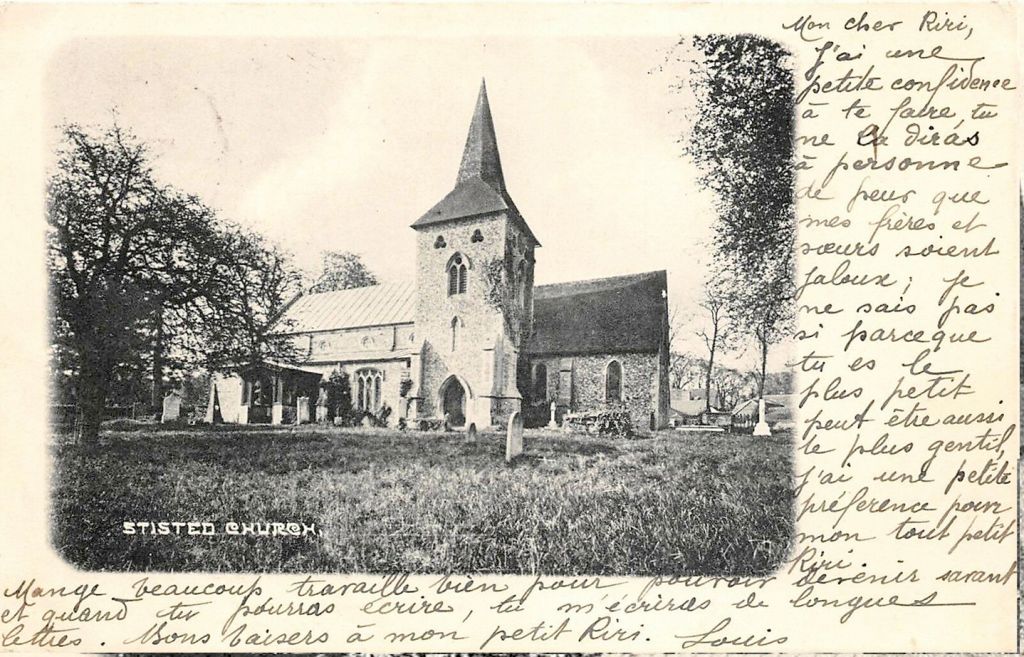 Mon cher Riri,
J'ai une
petite confidence
à te faire, tu
ne la diras
à personne
de peur que
mes frères et
sœurs soient
jaloux; je
ne sais pas
si parceque
tu es le
plus petit
peut être aussi
le plus gentil,
j'ai une petite
préférence pour
mon tout petit
Riri.
Mange beaucoup travaille bien pour pouvoir devenir savant
et quand tu pourras écrire, tu m'écriras de longues
lettres. Bons baisers à mon petit Riri. Louis
STISTED CHURCH.